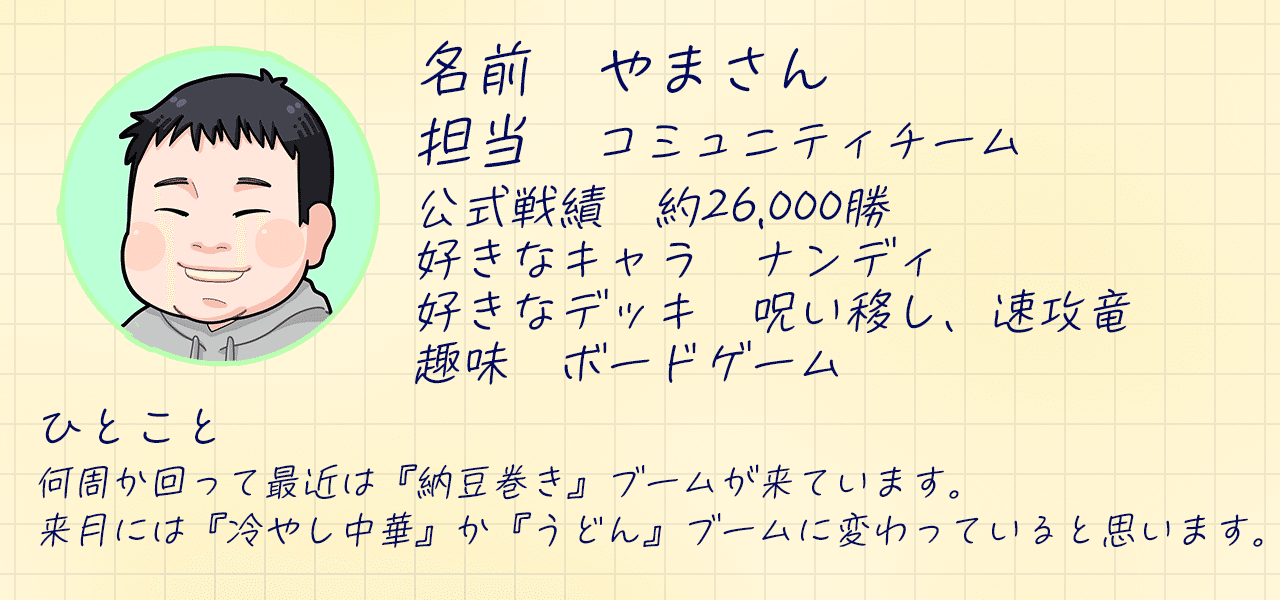 名前　やまさん
担当　コミュニティチーム
公式戦績　約26,000勝
好きなキャラ　ナンディ
好きなデッキ　呪い移し、速攻竜
趣味　ボードゲーム
ひとこと
何周か回って最近は『納豆巻き』ブームが来ています。
来月には『冷やし中華』か『うどん』ブームに変わっていると思います。